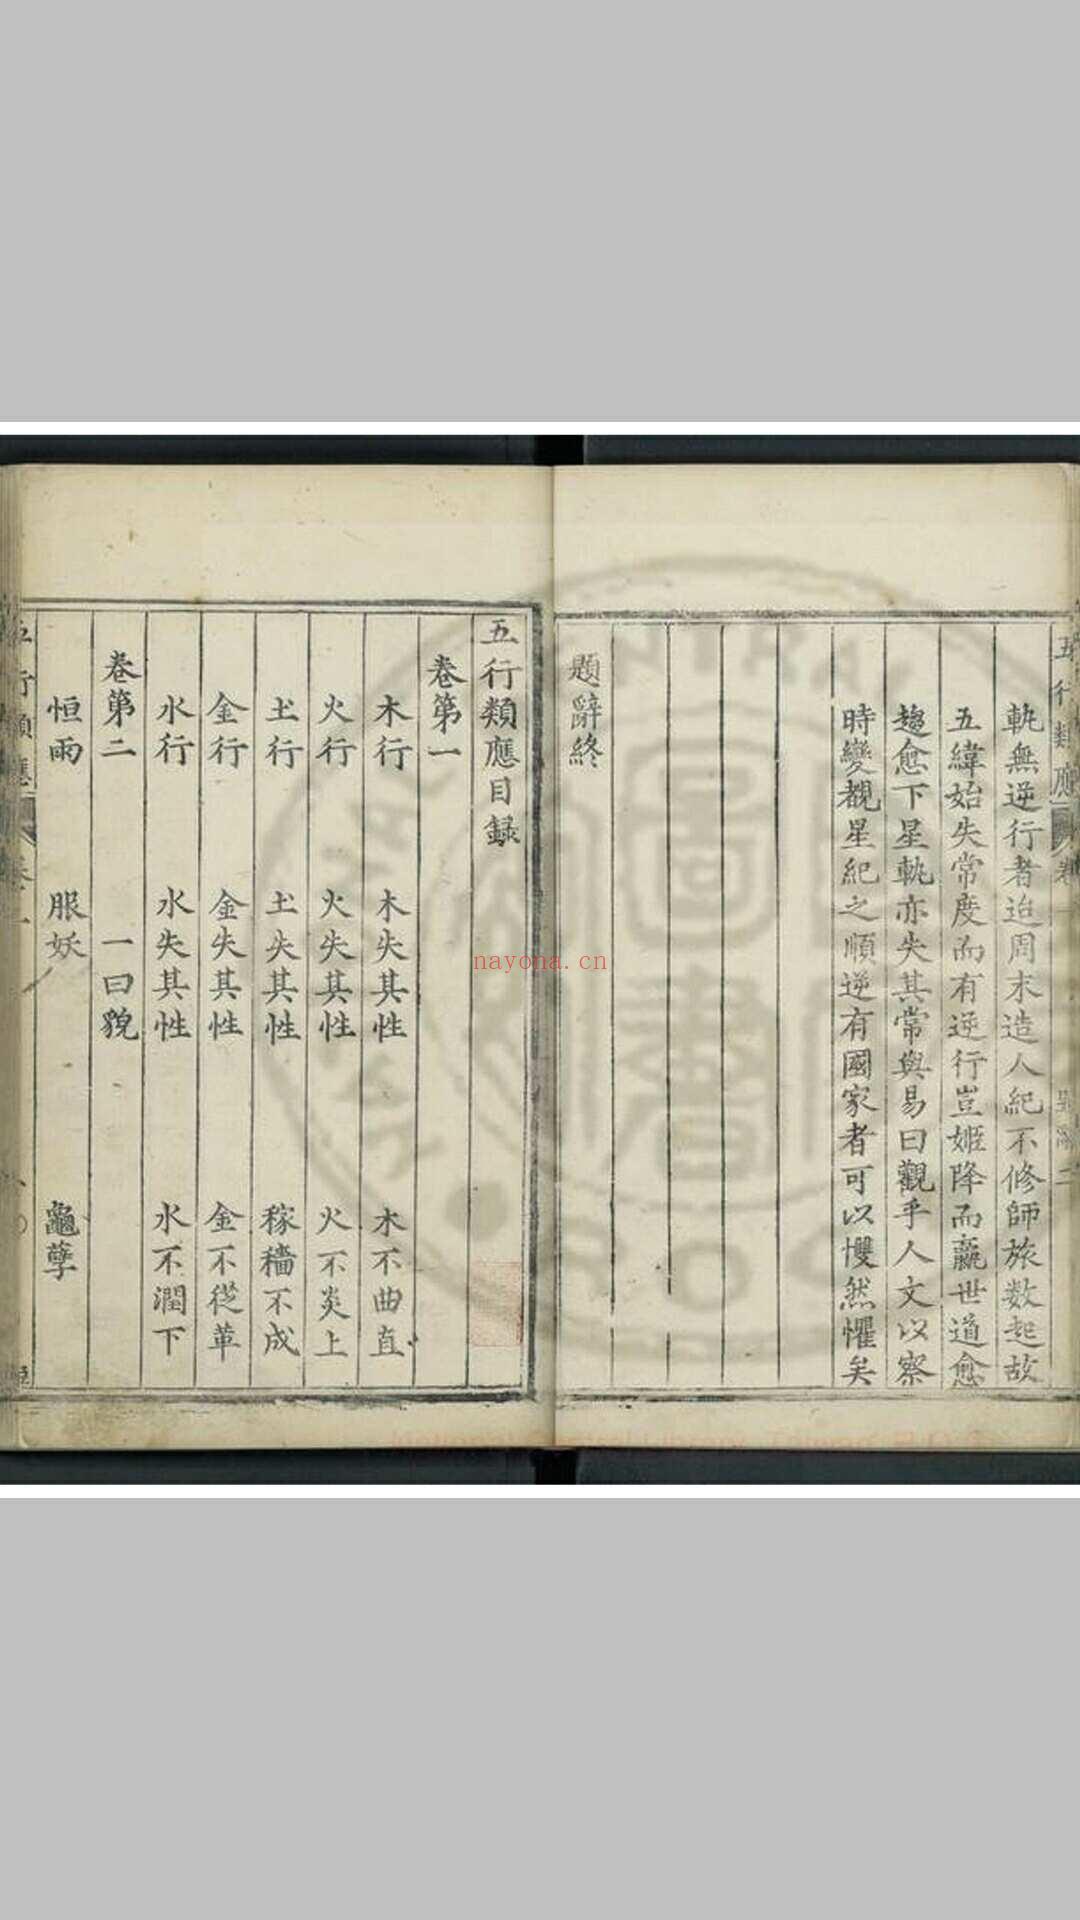 五行類應
卷一
軌無逆行者迨周末造人紀不修師旅数起故
五緯始失常度而有逆行豈姬降而嬴世道愈
趨愈下星軌亦失其常與易曰觀乎人文以察
時變覩星紀之順逆有國家者可以戄然懼矣
題辭終
五行類應目録
卷第一
木行 木失其性 木不曲直
火行 火失其性 火不炎上
土行 土失其性 稼穡不成
金行 金失其性 金不從革
水行 水失其性 水不潤下
卷第二 一曰貌
恒雨 服妖 龜孽
五行類應
nayona.cn